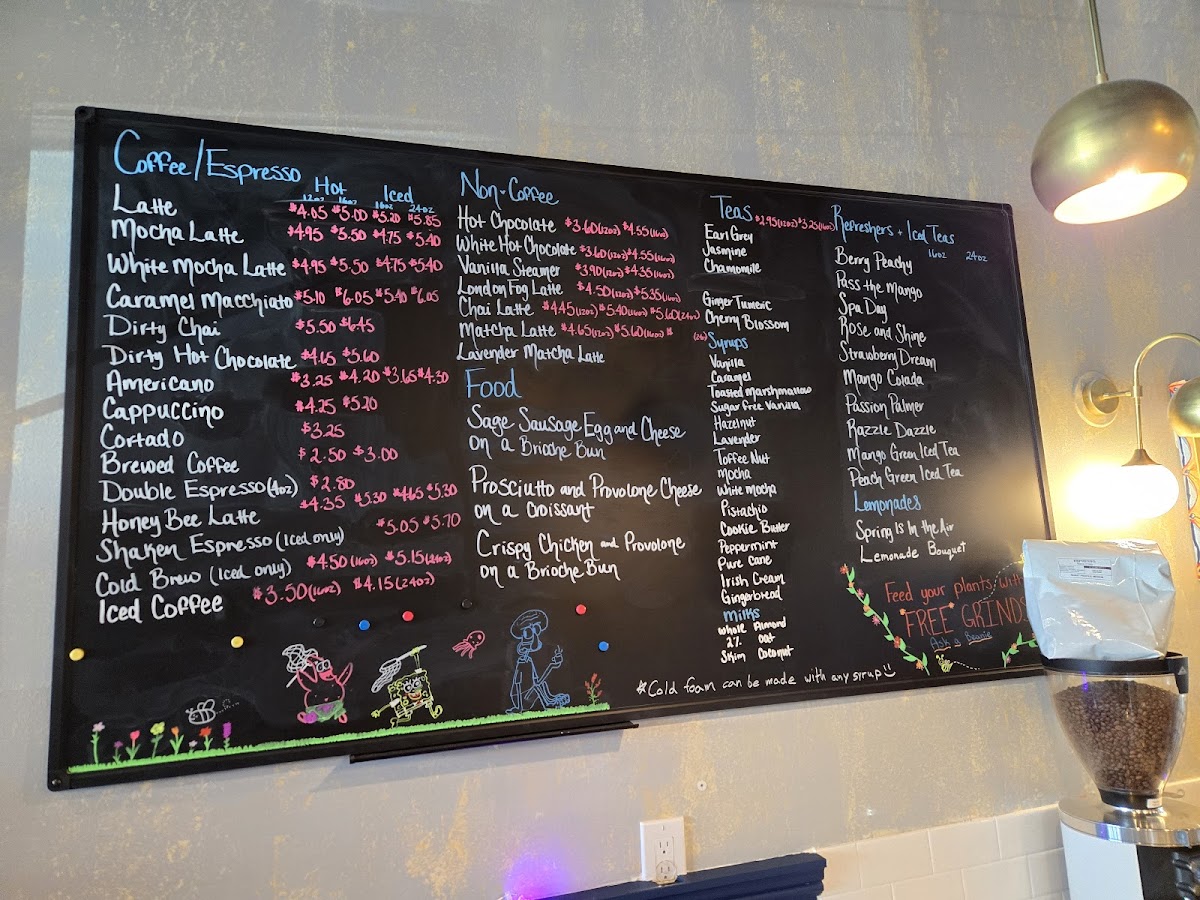 Coffee/Espresso
Hot Iced
12oz 16oz 16oz 24oz
Latte $4.65 $5.00 $5.20 $5.85
Mocha Latte $4.95 $5.50 $4.75 $5.40
White Mocha Latte $4.95 $5.50 $4.75 $5.40
Caramel Macchiato $5.10 $6.05 $5.40 $6.05
Dirty Chai $5.50 $6.45
Dirty Hot Chocolate $4.65 $5.60
Americano $3.25 $4.20 $3.65 $4.30
Cappuccino $4.25 $5.20
Cortado $3.25
Brewed Coffee $2.50 $3.00
Double Espresso (4oz) $2.80
Honey Bee Latte $4.35 $5.30 $4.65 $5.30
Shaken Espresso (Iced only) $5.05 $5.70
Cold Brew (Iced only) $4.50 (16oz) $5.15 (24oz)
Iced Coffee $3.50 (16oz) $4.15 (24oz)
Non-Coffee
Hot Chocolate $3.60 (12oz) $4.55 (16oz)
White Hot Chocolate $3.60 (12oz) $4.55 (16oz)
Vanilla Steamer $3.90 (12oz) $4.35 (16oz)
London Fog Latte $4.50 (12oz) $5.35 (16oz)
Chai Latte $4.45 (12oz) $5.40 (16oz) $5.60 (24oz)
Matcha Latte $4.65 (12oz) $5.60 (16oz) $
Lavender Matcha Latte
Food
Sage Sausage Egg and Cheese
on a Brioche Bun
Prosciutto and Provolone Cheese
on a croissant
Crispy Chicken and Provolone
on a Brioche Bun
Teas $2.95 (12oz) $3.25 (16oz)
Earl Grey
Jasmine
Chamomile
Ginger Tumeric
Cherry Blossom
Syrups
Vanilla
Caramel
Toasted Marshmallow
Sugar Free Vanilla
Hazelnut
Lavender
Toffee Nut
Mocha
White Mocha
Pistachio
Cookie Butter
Peppermint
Pure Cane
Irish Cream
Gingerbread
Milks
Whole Almond
2% Oat
Skim Coconut
Refreshers + Iced Teas
16oz 24oz
Berry Peachy
Pass the Mango
Spa Day
Rose and Shine
Strawberry Dream
Mango Colada
Passion Palmer
Razzle Dazzle
Mango Green Iced Tea
Peach Green Iced Tea
Lemonades
Spring Is In the Air
Lemonade Bouquet
Feed your plants with
FREE GRINDS
Ask a Beanie
*Cold foam can be made with any syrup